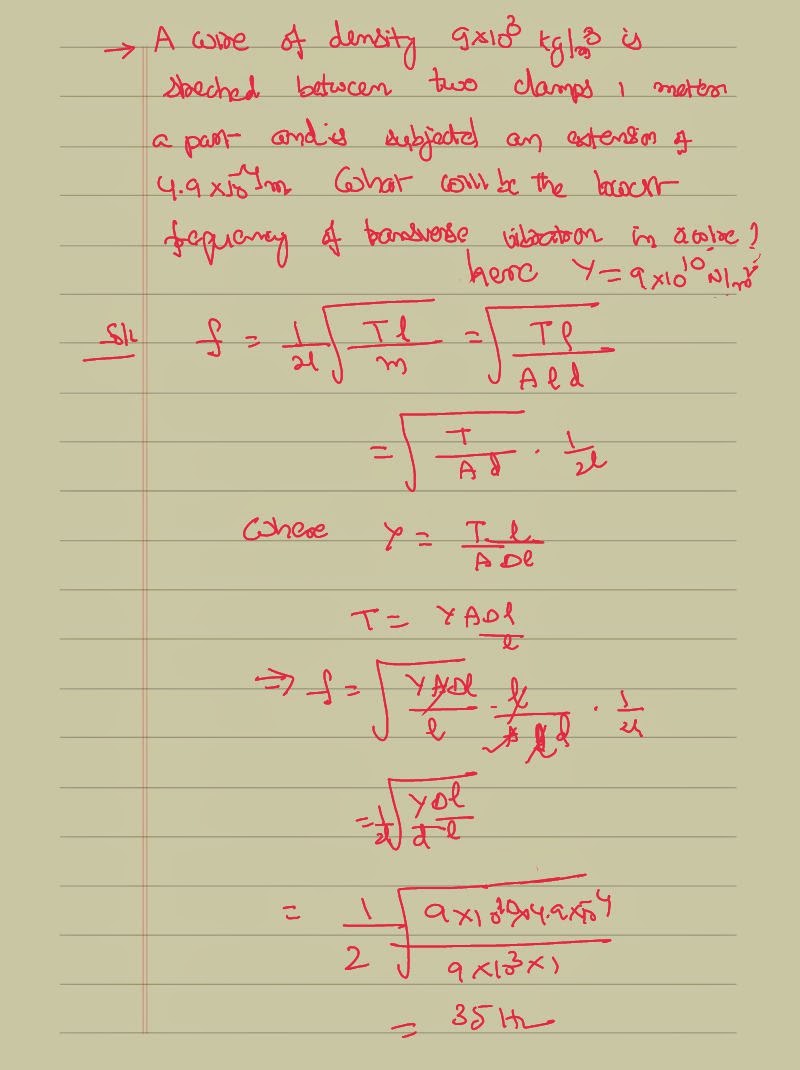 → A wire of density 9×10³ kg/m³ is
streched between two clamps 1 meter
a part and is subjected an extension of
4.9×10⁻⁴m What will be the lowest
frequency of transverse vibration in a wire?
here Y = 9×10¹⁰ N/m²
Sol f = 1/2l √(Tl/m) = √(Tl/Ald)
= √(T/Ad) · 1/2l
Where Y = Tl/ADl
T = YADl/l
⇒ f = √(YADl/l · l/Ald) · 1/2l
= 1/2l √(YDl/dl)
= 1/2 √(9×10¹⁰×4.9×10⁻⁴/9×10³×1)
= 35 Hz